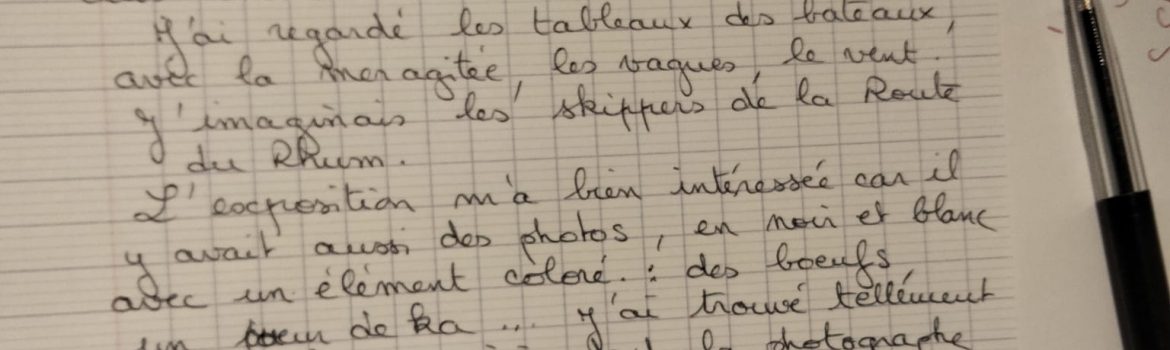 J'ai regardé les tableaux des bateaux,
avec la mer agitée, les vagues, le vent.
J'imaginais les skippers de la Route
du Rhum.
L'exposition m'a bien intéressée car il
y avait aussi des photos, en noir et blanc
avec un élément coloré : des boeufs
un de ka ... J'ai trouvé tellement
photographe